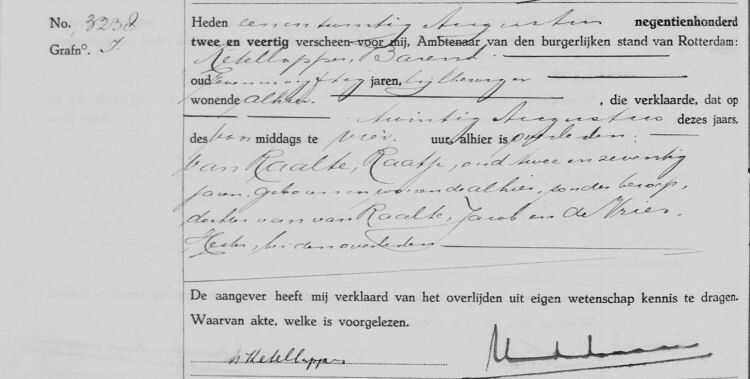 No. 3238
Grafn°. I
Heden eenentwintig Augustus negentienhonderd
twee en veertig verscheen voor mij, Ambtenaar van den burgerlijken stand van Rotterdam:
Ketellapper, Barend
oud zevenenvijftig jaren,
wonende alhier. , die verklaarde, dat op
twintig Augustus dezes jaars,
des voor middags te vier. uur, alhier is overleden:
van Raalte, Raatje, oud twee en zeventig
jaren, geboren en wonende alhier, zonder beroep,
dochter van van Raalte, Jacob en de Vries,
Hester, beiden overleden
De aangever heeft mij verklaard van het overlijden uit eigen wetenschap kennis te dragen.
Waarvan akte, welke is voorgelezen.
B Ketellapper